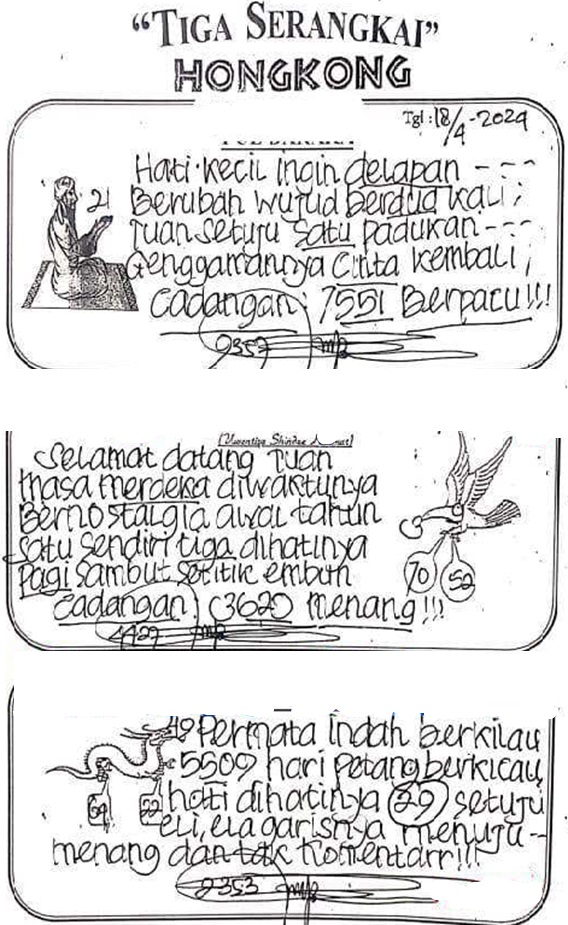 “TIGA SERANGKAI”
HONGKONG
Tgl : 18/4-2024
Hati kecil ingin delapan ----
21
Berubah wujud berdua kali ;
Tuan setuju satu padukan ---
Genggamannya Cinta kembali ;
Cadangan : 7551 Berpacu !!!
2357
Selamat datang Tuan
Masa merdeka diwaktunya
Bernostalgia awal tahun
Satu sendiri tiga dihatinya
Pagi sambut setitik embun
70 52
Cadangan : 3620 Menang !!!
4427
Permata indah berkilau
5509 hari petang berkicau,
hati dihatinya 29 setuju
eli, ela garisnya menuju -
menang dan tak komentarr!!!
2353